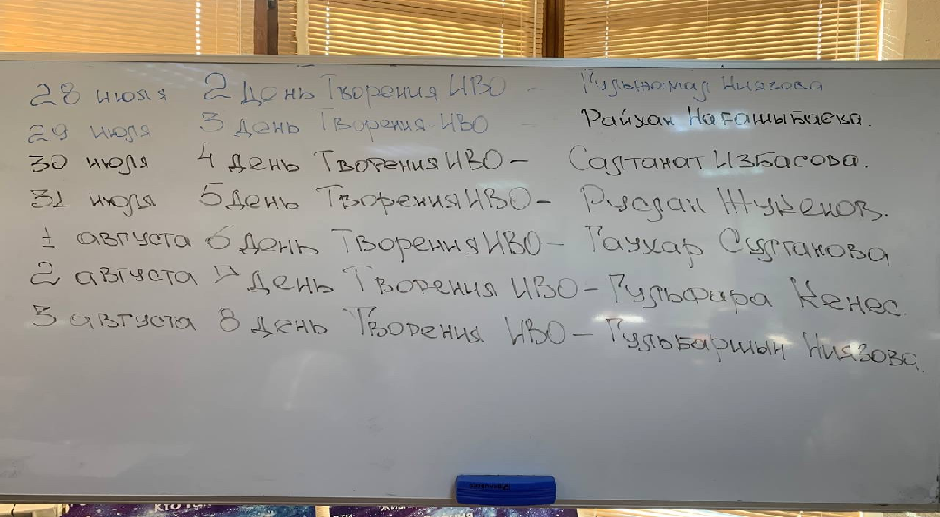 28 июля 2 День Творения ИВО - Гульжамал Ниязова
29 июля 3 день Творения ИВО - Райхан Нағашыбаева.
30 июля 4 День Творения ИВО - Салтанат Избасова.
31 июля 5 День Творения ИВО - Руслан Жукенов.
1 августа 6 День Творения ИВО - Гаухар Султанова
2 августа 7 День Творения ИВО - Гульфара Кенес.
3 августа 8 день Творения ИВО - Гульбаршын Ниязова.